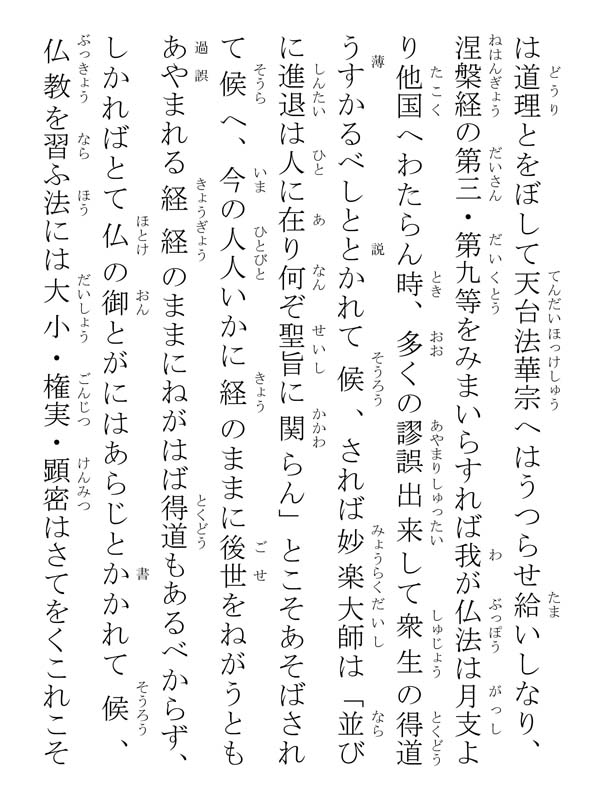 は道理とをぼして天台法華宗へはうつらせ給いしなり、
涅槃経の第三・第九等をみまいらすれば我が仏法は月支よ
り他国へわたらん時、多くの謬誤出来して衆生の得道
うすかるべしととかれて候、されば妙楽大師は「並び
に進退は人に在り何ぞ聖旨に関らん」とこそあそばされ
て候へ、今の人人いかに経のままに後世をねがうとも
あやまれる経経のままにねがはば得道もあるべからず、
しかればとて仏の御とがにはあらじとかかれて候、
仏教を習ふ法には大小・権実・顕密はさてをくこれこそ